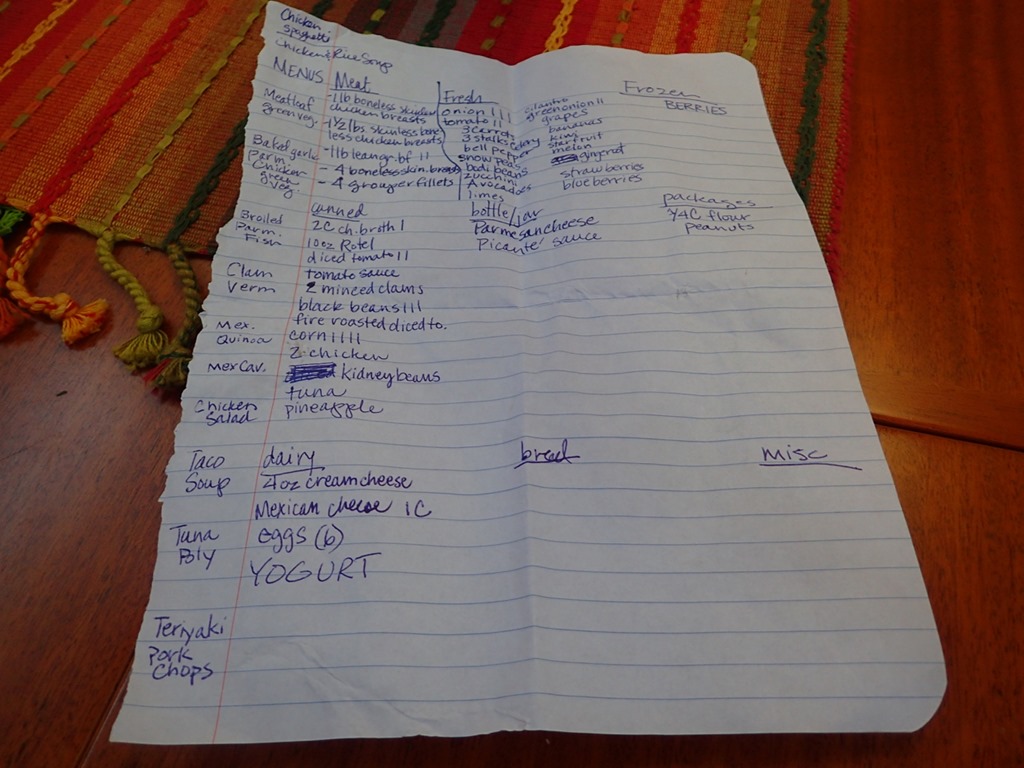 Chicken
Spaghetti
Chicken & Rice Soup
MENUS
Meatloaf
green veg.
Baked garlic
Parm.
Chicken
green
veg.
Broiled
Parm.
Fish
Clam
Verm
Mex.
Quinoa
Mex Cav.
Chicken
Salad
Taco
Soup
Tuna
Poly
Teriyaki
Pork
Chops
Meat
- 1 lb boneless skinless
chicken breasts
- 1½ lbs. skinless bone
less chicken breasts
- 1 lb lean gr. bf II
- 4 boneless skin. breas
- 4 grouper fillets
Fresh
onion III
tomato II
3 carrots
3 stalks celery
bell pepper
snow peas
bodi beans
zucchini
Avocadoes
limes
cilantro
green onion II
grapes
bananas
kiwi
starfruit
melon
gingerroot
strawberries
blueberries
Frozen
BERRIES
canned
2C ch. broth I
10 oz Rotel
diced tomato II
tomato sauce
2 minced clams
black beans III
fire roasted diced to.
corn IIII
2 chicken
kidney beans
tuna
pineapple
bottle/jar
Parmesan cheese
Picanté sauce
packages
¾C flour
peanuts
dairy
4 oz cream cheese
Mexican cheese 1C
eggs (6)
YOGURT
bread
misc